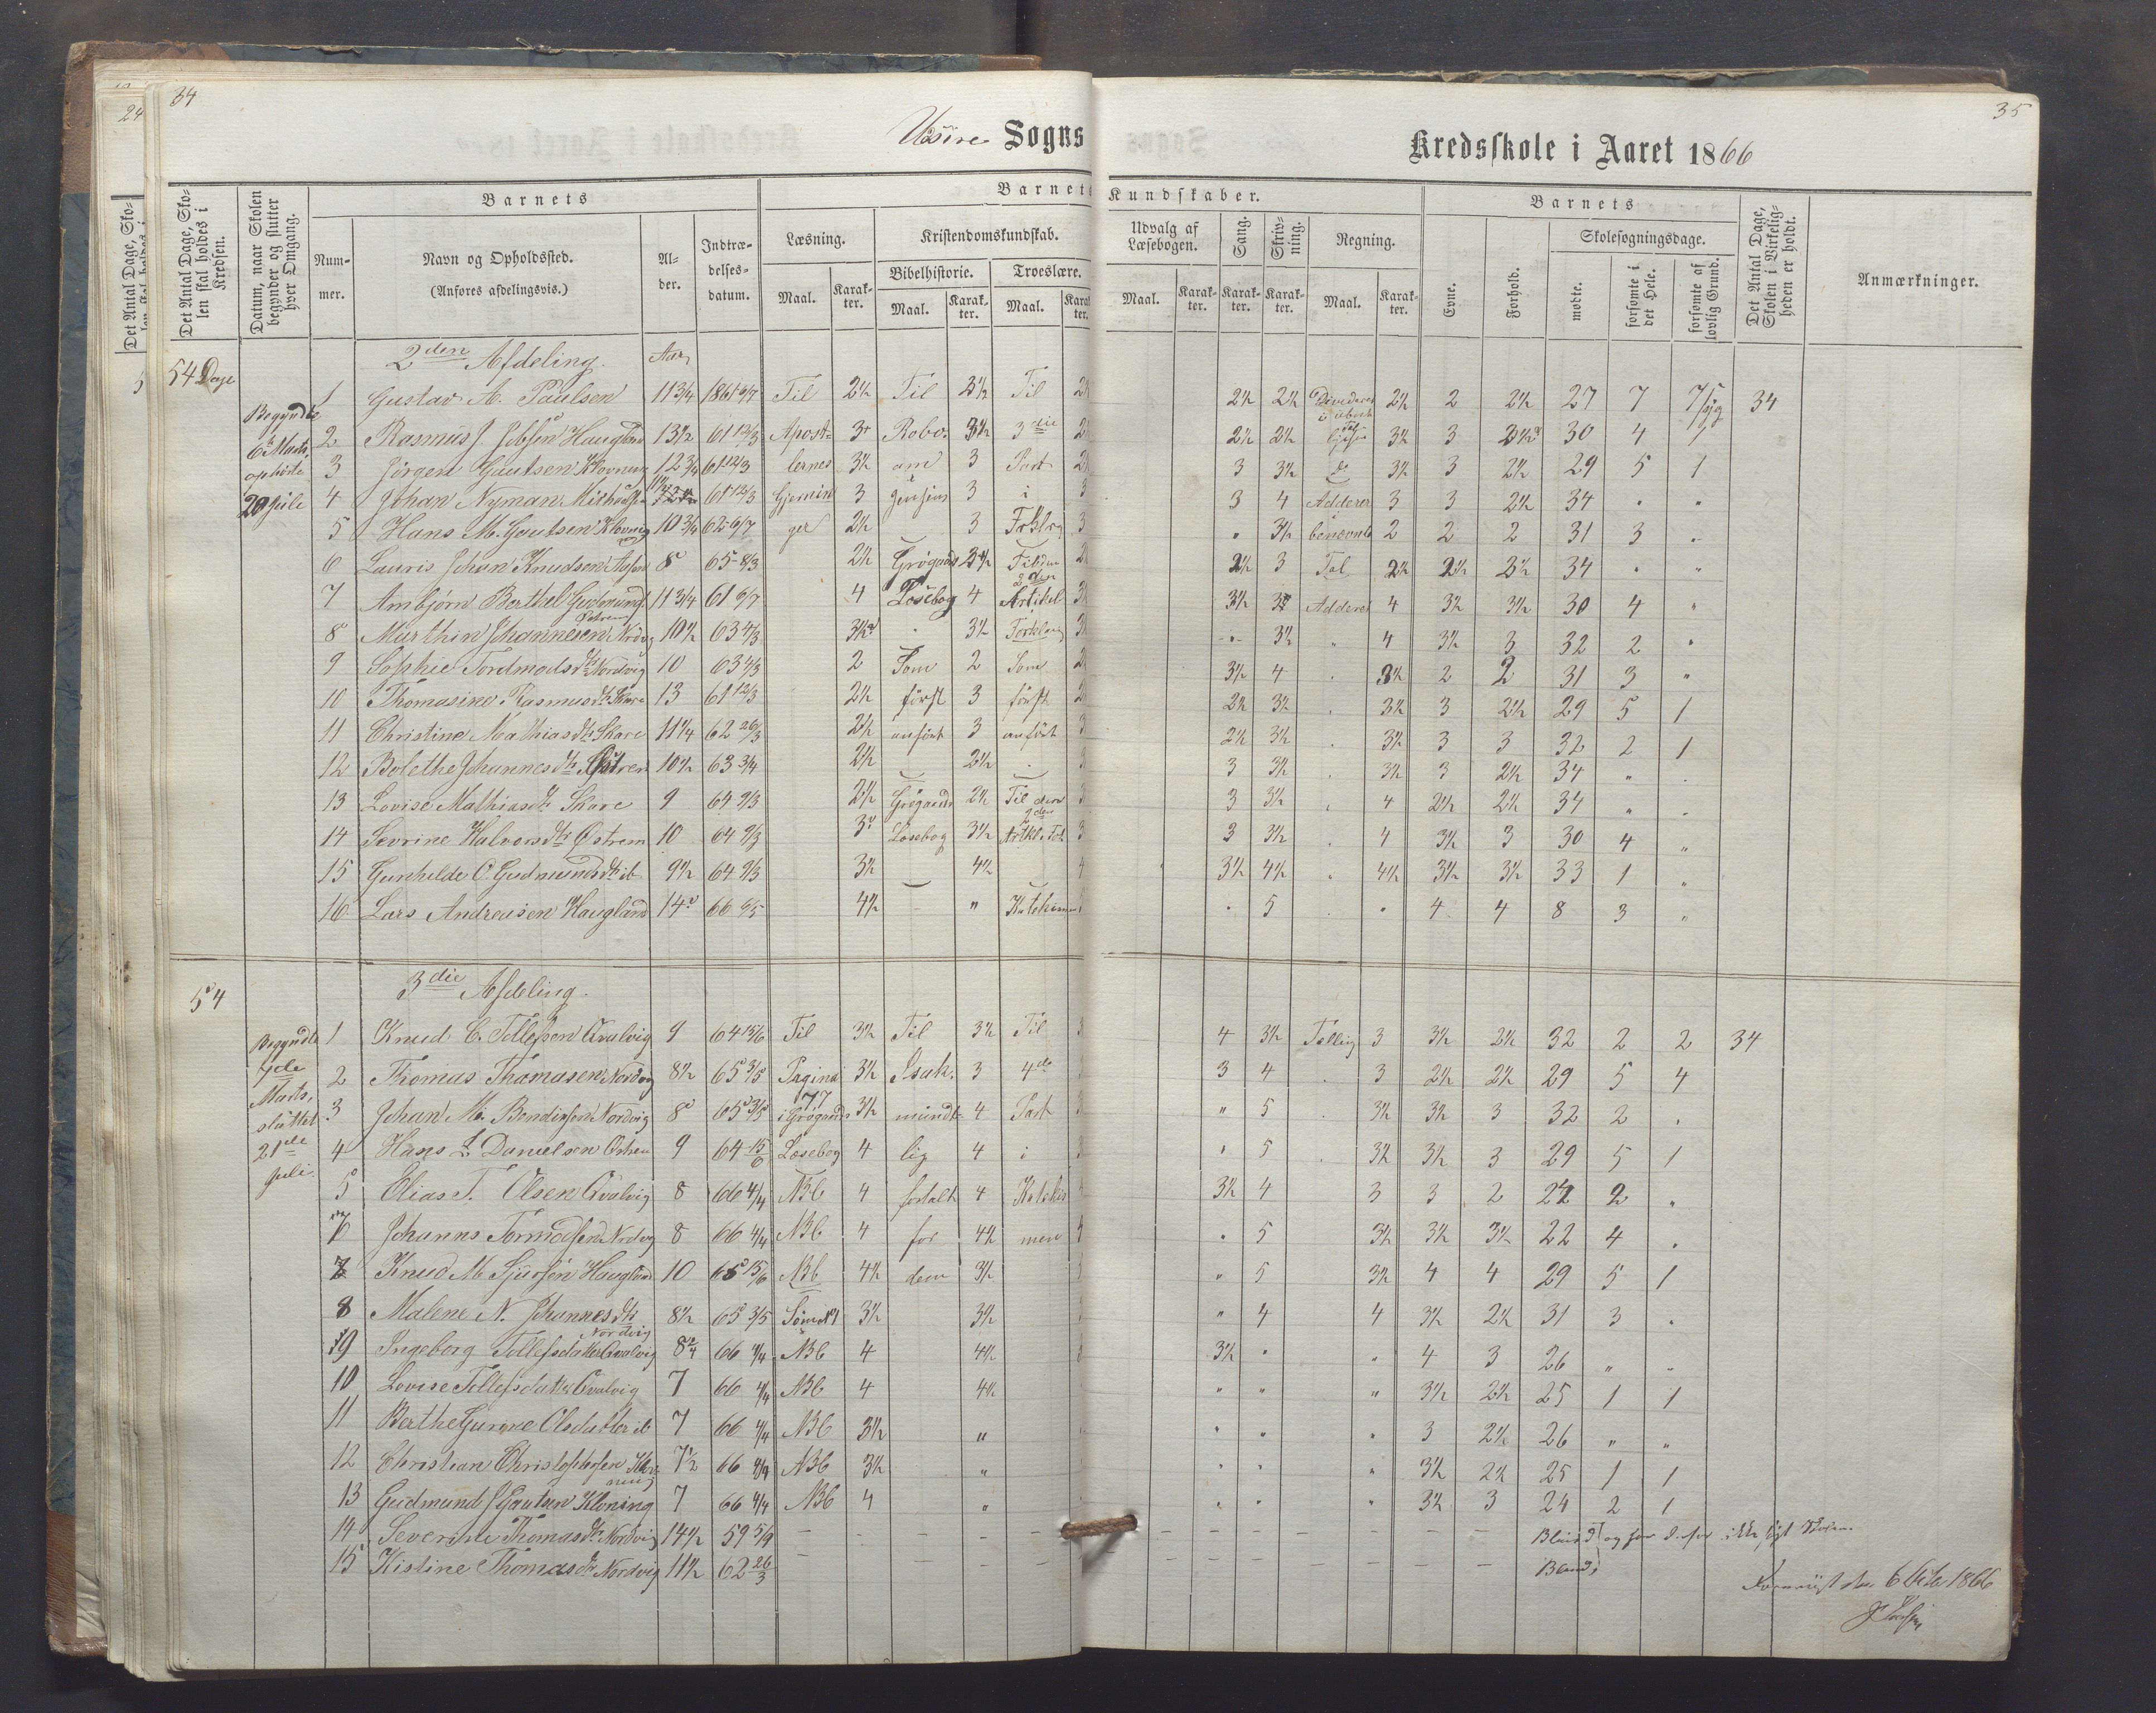 34
Utsire Sogns
Kredsskole i Aaret 1866
35
24
Det Antal Dage, Skolen skal holdes i Kredsen.
Datum, naar Skolen begynder og slutter hver Omgang.
Barnets
Nummer.
Navn og Opholdssted.
(Anføres afdelingsvis.)
Alder.
Indtrædelsesdatum.
Barnets Kundskaber.
Læsning.
Maal.
Karakter.
Kristendomskundskab.
Bibelhistorie.
Maal.
Karakter.
Troeslære.
Maal.
Karakter.
Udvalg af Læsebogen.
Maal.
Karakter.
Sang.
Karakter.
Skrivning.
Karakter.
Regning.
Maal.
Karakter.
Barnets
Evne.
Forhold.
Skolesøgningsdage.
mødte.
forsømte i det Hele.
forsømte af lovlig Grund.
Det Antal Dage, Skolen i Virkeligheden er holdt.
Anmærkninger.
54 Dage
2den Afdeling. Aar
Begyndte
1 Gustav A. Paulsen 11 3/4 1861 Til 2½ Til 3½ Til 2½ 2½ 2½ 2 2½ 27 7 34
2 Rasmus J. Haugland 13½ 61 12/3 Apost- 3+ Robo- 3½ 3die 2½ 2½ 3½ 3 30 4 1
ophørte
3 Jørgen Gautsen Klovning 12 3/4 61 12/3 lernes 3½ am 3 Part 3 3½ do 3½ 3 2½ 29 5 1
20 Juli
4 Johan Nyman 61 12/3 Gjernin 3 3 i 3 3 4 Adderer 3 3 2½ 34 " "
5 Hans M. Gautsen Klovning 10 3/4 62 6/7 ger 2½ 3 Forklrg 3 " 3½ benævnte 2 2 2 31 3 "
6 Lauris Johan Knudsen 8 65 8/3 2½ Grøgaards Til den 3 Tal 2½ 34 " "
7 Ambjørn Berthel Gudmunds. 11 3/4 61 6/7 4 Læsebog 4 2den Artikel 3½ Adderer 4 3½ 3½ 30 4 "
8 Marthin Johannesen 10½ 63 4/3 3½ 3½ Forklaring 3½ " 4 3½ 3 32 2 "
9 Sophie Tordmodsdtr Nordvig 10 63 4/3 2 Som 2 Som 3½ 4 3½ 2 2 31 3 "
10 Thomasine Rasmusdtr Skare 13 61 12/3 2½ først 3 først 2½ 3½ 3½ 3 2½ 29 5 1
11 Christine Mathiasdtr Skare 11¼ 62 26/3 2½ anført 3 anført 3 2½ 3½ 3½ 3 3 32 2 1
12 Bolethe Johannesdtr Østrem 10½ 63 3/4 2½ 2½ 3 3½ 3½ 3 2½ 34 "
13 Lovise Mathiasdtr Skare 9 64 9/3 2½ Grøgaards 2½ Til den 3 3½ 4 2½ 2½ 34 "
14 Sevrine Halvorsdtr Østrem 10 64 9/3 3 Læsebog 3½ 2den 3 3½ 4 3½ 3 30 4 "
15 Gunhilde O. Gudmundsdtr ib 9½ 64 9/3 3½ 4½ 4 3½ 4½ 4½ 3½ 3½ 33 1 "
16 Lars Andreasen Haugland 14 66 4½ " 5 4 4 8 3 "
54
3die Afdeling.
Begyndte
1 Knud C. Tollefsen Qvalvig 9 64 15/6 Til 3½ Til 3½ Til 4 3½ Tælling 3 3½ 2½ 32 2 2 34
7de
2 Thomas Thomasen Nordvig 8½ 65 3/5 Pagina 3½ Isak. 3 4de 3 4 3 2½ 2½ 29 5 4
Marts,
3 Johan M. Nordvig 8 65 3/5 77 i Grøgaards 3½ mundt- 4 Part " 5 3½ 3½ 3 32 2
sluttet
4 Hans L. Danielsen 9 64 15/6 Læsebog 4 lig 4 i " 5 3½ 3½ 3 29 5 1
21de Juli.
5 Elias T. Olsen Qvalvig 8 66 4/4 ABC 4 fortalt 4 Katekis 3½ 4 3 3 2 2
6 Johanns Tormodsen Nordvig 8 66 4/4 ABC 4 for 4½ men 5 3½ 3½ 3½ 22 4
7 Knud M. Sjursen Haugland 10 65 15/6 ABC 4½ dem 3½ " 5 3½ 4 4 29 5 1
8 Malene N. Johannesdtr Nordvig 8½ 65 3/5 3½ 3½ " 4 4 3½ 2½ 31 3
9 Ingeborg Tollefsdatter Qvalvig 66 4/4 ABC 4 4½ 3½ " " 4 3 26 " "
10 Lovise Tollefsdatter Qvalvig 7 66 4/4 ABC 4 4½ " " " 3½ 2½ 25 1 1
11 Berthe Gurine Olsdatter ib 7 66 4/4 ABC 3½ " " " " 3 2½ 26 " "
12 Christian Christophersen Klovning 7½ 66 4/4 ABC 3½ " " " " 3½ 2½ 25 1 1
13 Gudmund J Gautsen Kloning 7 66 4/4 ABC 4 " " " " 3½ 3 24 2 1
14 Severine Thomasdtr Nordvig 14½ 59 5/9 Blind og har derfor ikke søgt Skolen.
15 Kistine Thomasdtr Nordvig 11½ 62 26/3 Blind
den 6 1866